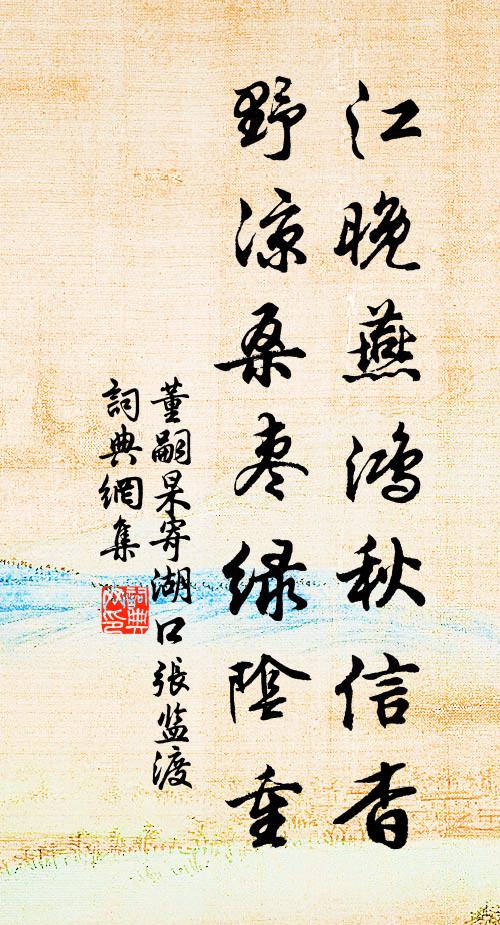 江晚燕鸿秋信杳
野凉桑枣绿陰重
董嗣杲寄湖口張监渡
詞典網集